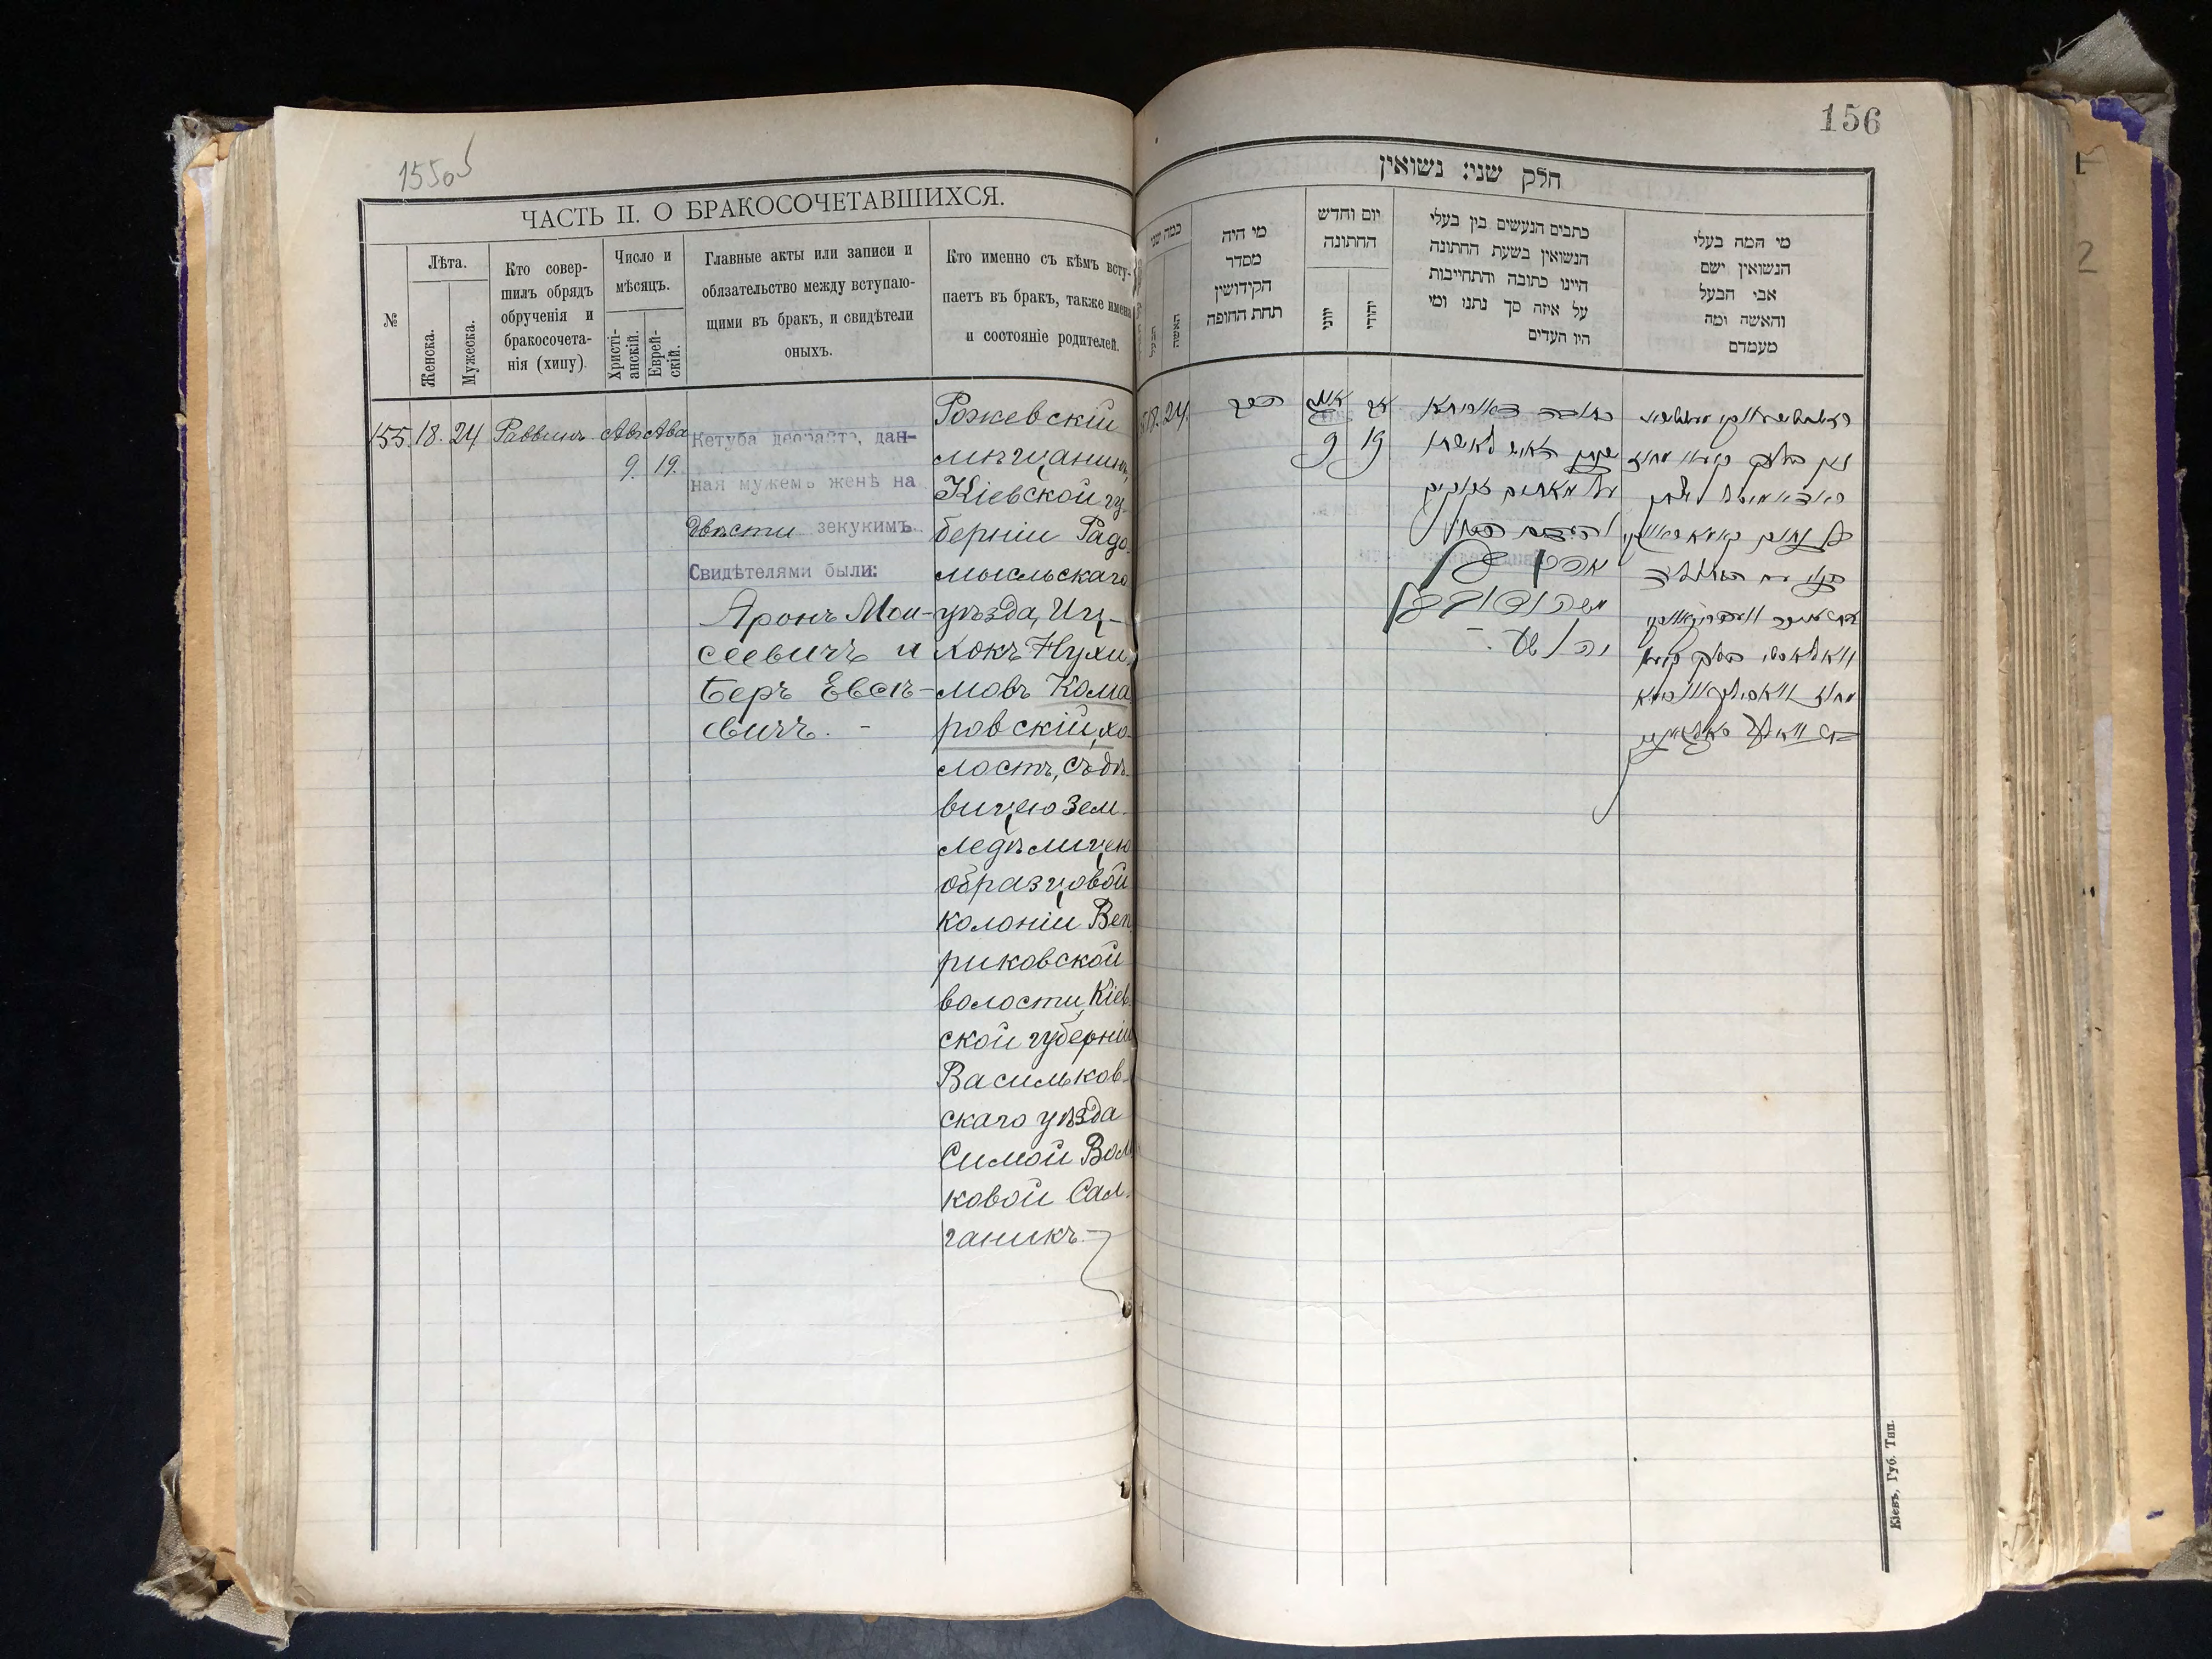 155об
ЧАСТЬ II. О БРАКОСОЧЕТАВШИХСЯ.
№
Лѣта.
Женска.
Мужеска.
Кто совер-
шилъ обрядъ
обрученія и
бракосочета-
нія (хипу).
Число и
мѣсяцъ.
Христі-
анскій.
Еврей-
скій.
Главные акты или записи и
обязательство между вступаю-
щими въ бракъ, и свидѣтели
оныхъ.
Кто именно съ кѣмъ всту-
паетъ въ бракъ, также имена
и состояніе родителей.
155. 18. 24 Раввинъ Авг Ава
9. 19.
Кетуба деорайта, дан-
ная мужемъ женѣ на
двѣсти зекукимъ.
Свидѣтелями были:
Аронъ Мои-
сеевичъ и
Беръ Евсѣ-
евичъ. -
Рожевскій
мѣщанинъ,
Кіевской гу-
берніи Радо-
мысльскаго
уѣзда, Иц-
хокъ Нухи-
мовъ Кома
ровскій, хо-
лостъ, съ дѣ-
вицею зем-
ледѣлицею
образцовой
колоніи Веп
риковской
волости, Кіев-
ской губерніи
Васильков-
скаго уѣзда
Симой Вол
ковой Сал-
ганикъ.
156
חלק שני: נשואין
כמה שני
הבעל
האשה
מי היה
מסדר
הקידושין
תחת החופה
יום וחדש
החתונה
יווני
יהודי
כתבים הנעשים בין בעלי
הנשואין בשעת החתונה
היינו כתובה והתחייבות
על איזה סך נתנו ומי
היו העדים
מי המה בעלי
הנשואין ושם
אבי הבעל
והאשה ומה
מעמדם
18. 24.
הרב
אויג אב
9 19
כתובה דאורייתא
שנתן האיש לאשתו
על מאתים זקוקים
והעדים היו
אהרן
משה
Кіевъ, Губ. Тип.